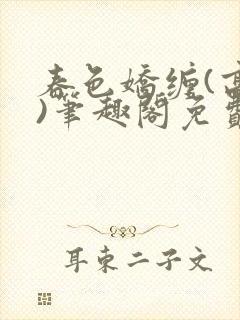 春色嬌纏(高
)筆趣閣免費
耳東二子文